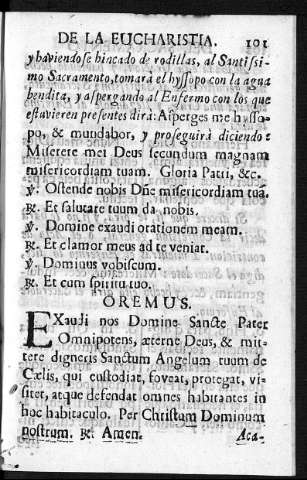 DE LA EUCHARISTIA. 101
y haviendose hincado de rodillas, al Santissi-
mo Sacramento, tomará el hyssopo con la agua
bendita, y aspergando al Enfermo con los que
estuvieren presentes dirá: Asperges me hysso-
po, & mundabor, y proseguirá diciendo:
Miserere mei Deus secundum magnam
misericordiam tuam. Gloria Patri, &c.
℣. Ostende nobis Dñe misericordiam tuã.
℟. Et salutare tuum da nobis.
℣. Domine exaudi orationem meam.
℟. Et clamor meus ad te veniat.
℣. Dominus vobiscum.
℟. Et cum spiritu tuo.
OREMUS.
EXaudi nos Domine Sancte Pater
Omnipotens, æterne Deus, & mit-
tere digneris Sanctum Angelum tuum de
Cœlis, qui custodiat, foveat, protegat, vi-
sitet, atque defendat omnes habitantes in
hoc habitaculo. Per Christum Dominum
nostrum. ℟. Amen. Aca-